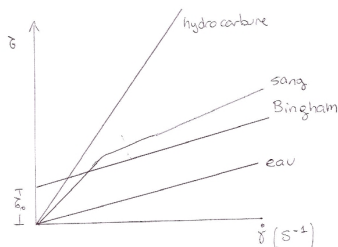 hydrocarbure
σ
sang
Bingham
eau
σ₀
γ̇ (S⁻¹)